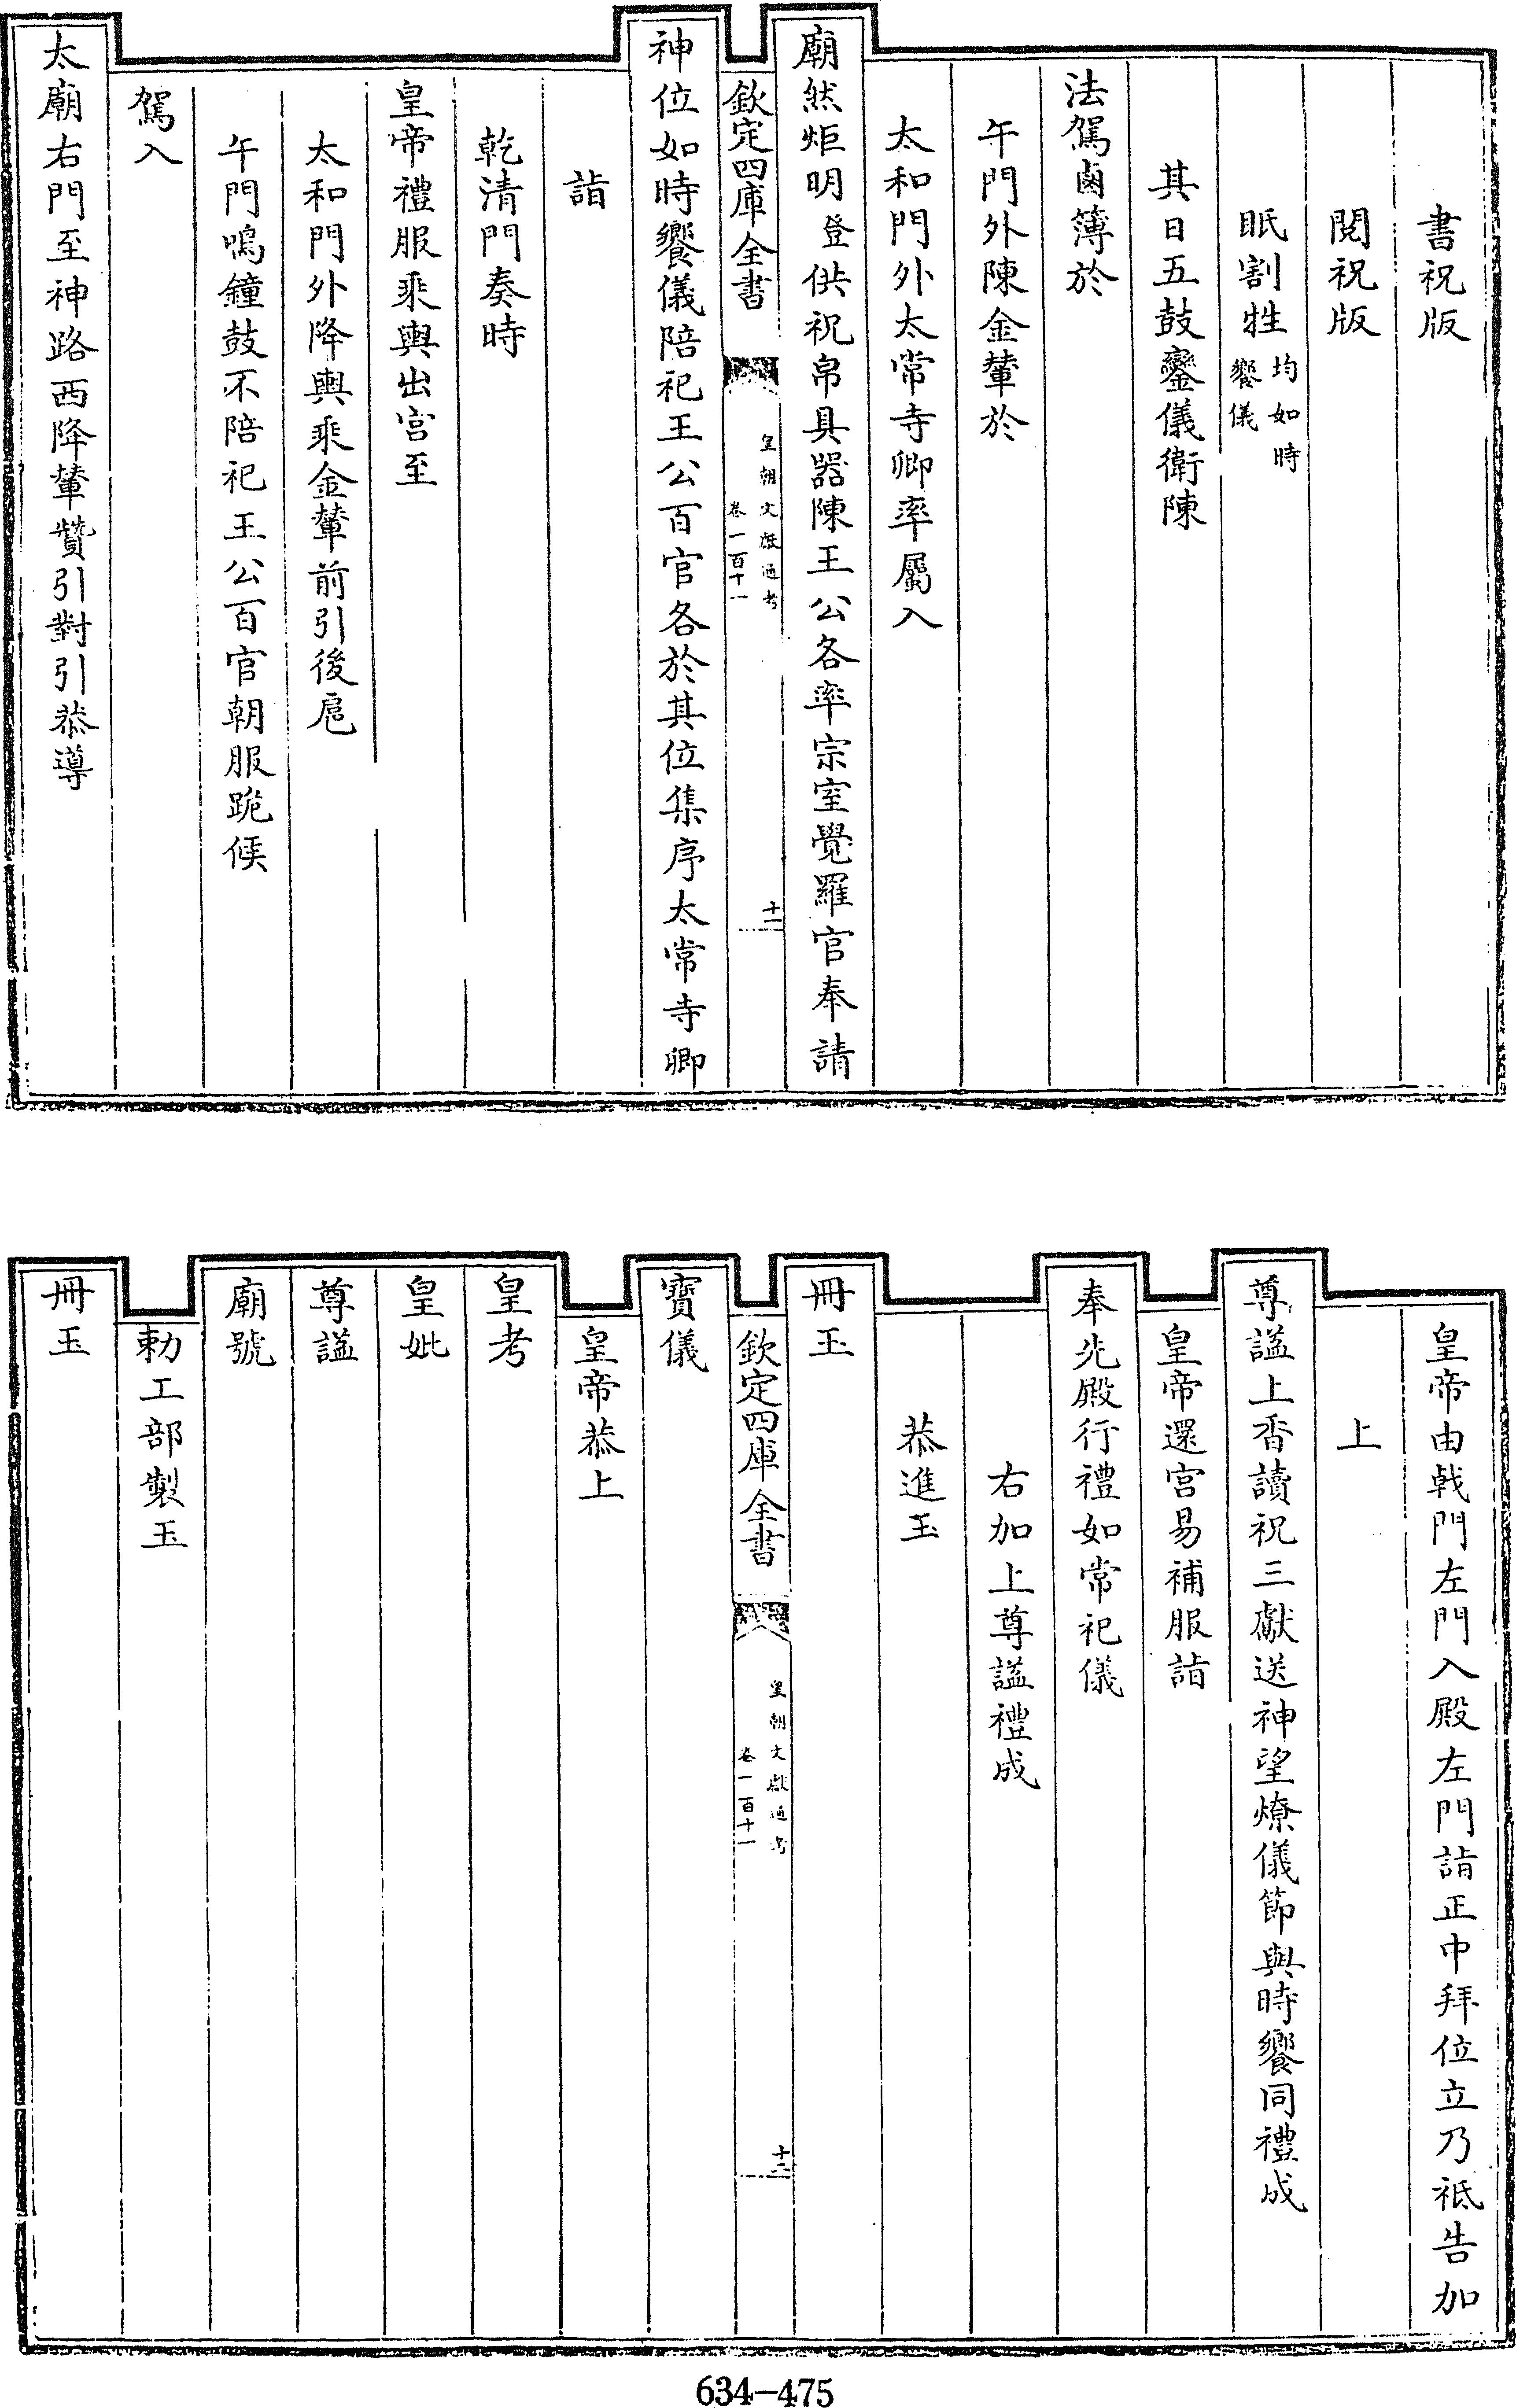 書祝版
閱祝版
眡割牲均如時饗儀
其日五鼓鑾儀衛陳
法駕鹵簿於
午門外陳金輦於
太和門外太常寺卿率屬入
廟然炬明登供祝帛具器陳王公各率宗室覺羅官奉請
欽定四庫全書
皇朝文獻通考
卷一百十一
十一
神位如時饗儀陪祀王公百官各於其位集序太常寺卿
詣
乾清門奏時
皇帝禮服乘輿出宮至
太和門外降輿乘金輦前引後扈
午門鳴鐘鼓不陪祀王公百官朝服跪候
駕入
太廟右門至神路西降輦贊引對引恭導
皇帝由戟門左門入殿左門詣正中拜位立乃祗告加
上
尊諡上香讀祝三獻送神望燎儀節與時饗同禮成
皇帝還宮易補服詣
奉先殿行禮如常祀儀
右加上尊諡禮成
恭進玉
冊玉
欽定四庫全書
皇朝文獻通考
卷一百十一
十二
寶儀
皇帝恭上
皇考
皇妣
尊諡
廟號
勅工部製玉
冊玉
634-475